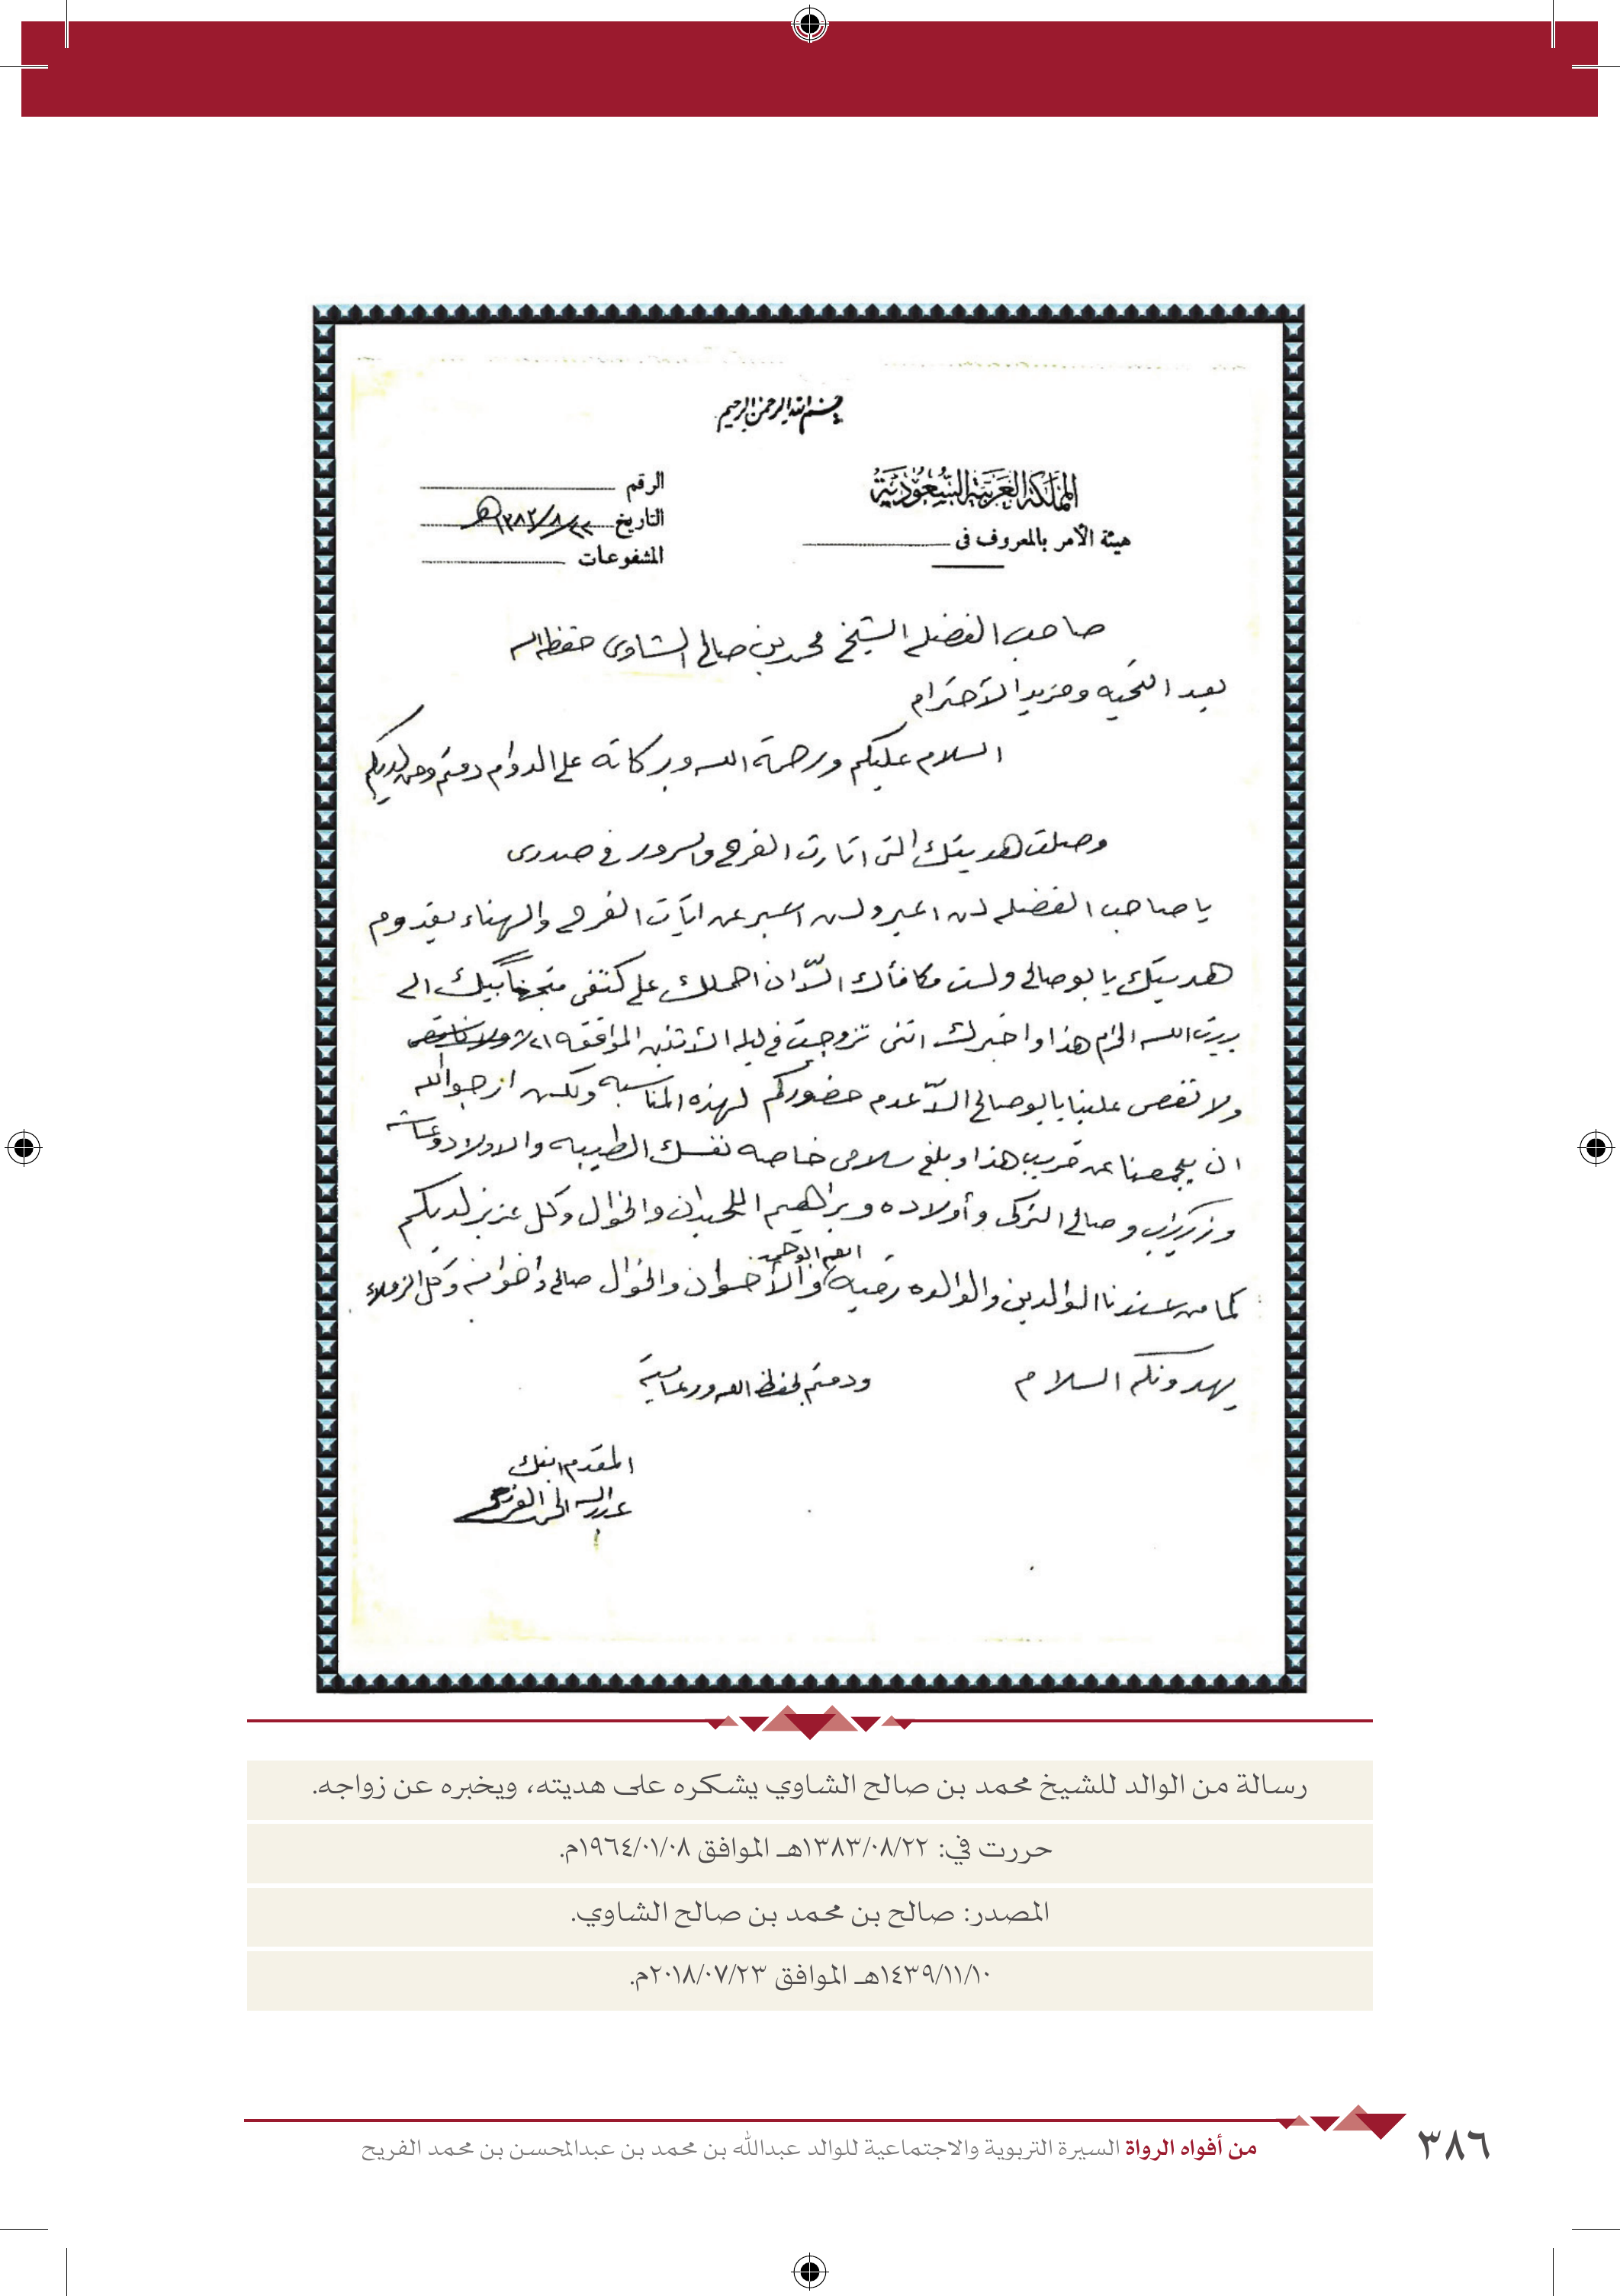 بسم الله الرحمن الرحيم
المملكة العربية السعودية
هيئة الأمر بالمعروف فى
الرقم
التاريخ ٢٢/٨/١٣٨٣هـ
المشفوعات
صاحب الفضله الشيخ محمد بن صالح الشاوى حفظه الله
بعد التحيه ومزيد الآحترام
السلام عليكم ورحمة الله وبركاته على الدوام دمتم ومن لديكم
وصلت هديتك التى اثارت الفرح والسرور في صدرى
يا صاحب الفضله لن اعبر ولن اعبر عن ايآت الفرح والهناء بقدوم
هديتك يا بو صالح ولست مكافأك الاّ ان احملك على كتفى متجهاً بيك الى
بيت الله الحرام هذا واخبرك اننى تزوجت في ليلة الأثنين الموافقه
ولا نقص علينا يا بو صالح الاّ عدم حضوركم لهذه المناسبه ولكن ارجو الله
ان يجمعنا عن قريب هذا وبلغ سلامى خاصه نفسك الطيبه والاولاد
وصالح التركى وأولاده وبراهيم اللحيدان والخوال وكل عزيز لديكم
كما من عندنا الوالدين والوالده رقيه والأخوان والخوال صالح واخوانه وكل الزملاء
يهدونكم السلام
ودمتم بحفظ الله ورعايته
المقدم ابنك
عبدالله المحسن الفريح
رسالة من الوالد للشيخ محمد بن صالح الشاوي يشكره على هديته، ويخبره عن زواجه.
حررت في: ١٣٨٣/٠٨/٢٢هـ الموافق ١٩٦٤/٠١/٠٨م.
المصدر: صالح بن محمد بن صالح الشاوي.
١٤٣٩/١١/١٠هـ الموافق ٢٠١٨/٠٧/٢٣م.
من أفواه الرواة السيرة التربوية والاجتماعية للوالد عبدالله بن محمد بن عبدالمحسن بن محمد الفريح
٣٨٦